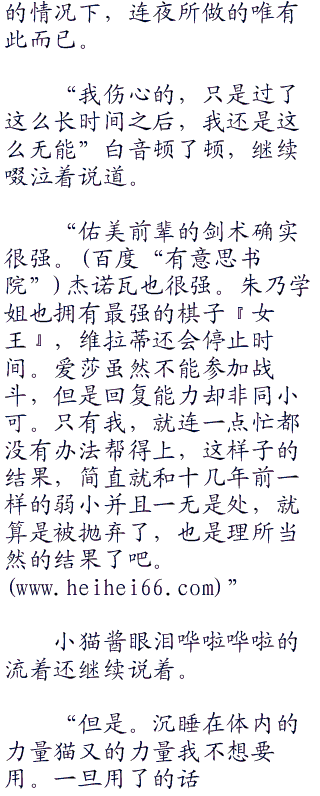 的情况下，连夜所做的唯有
此而已。
“我伤心的，只是过了
这么长时间之后，我还是这
么无能”白音顿了顿，继续
啜泣着说道。
“佑美前辈的剑术确实
很强。(百度“有意思书
院”)杰诺瓦也很强。朱乃学
姐也拥有最强的棋子『女
王』，维拉蒂还会停止时
间。爱莎虽然不能参加战
斗，但是回复能力却非同小
可。只有我，就连一点忙都
没有办法帮得上，这样子的
结果，简直就和十几年前一
样的弱小并且一无是处，就
算是被抛弃了，也是理所当
然的结果了吧。
(www.heihei66.com)”
小猫酱眼泪哗啦哗啦的
流着还继续说着。
“但是。沉睡在体内的
力量猫又的力量我不想要
用。一旦用了的话